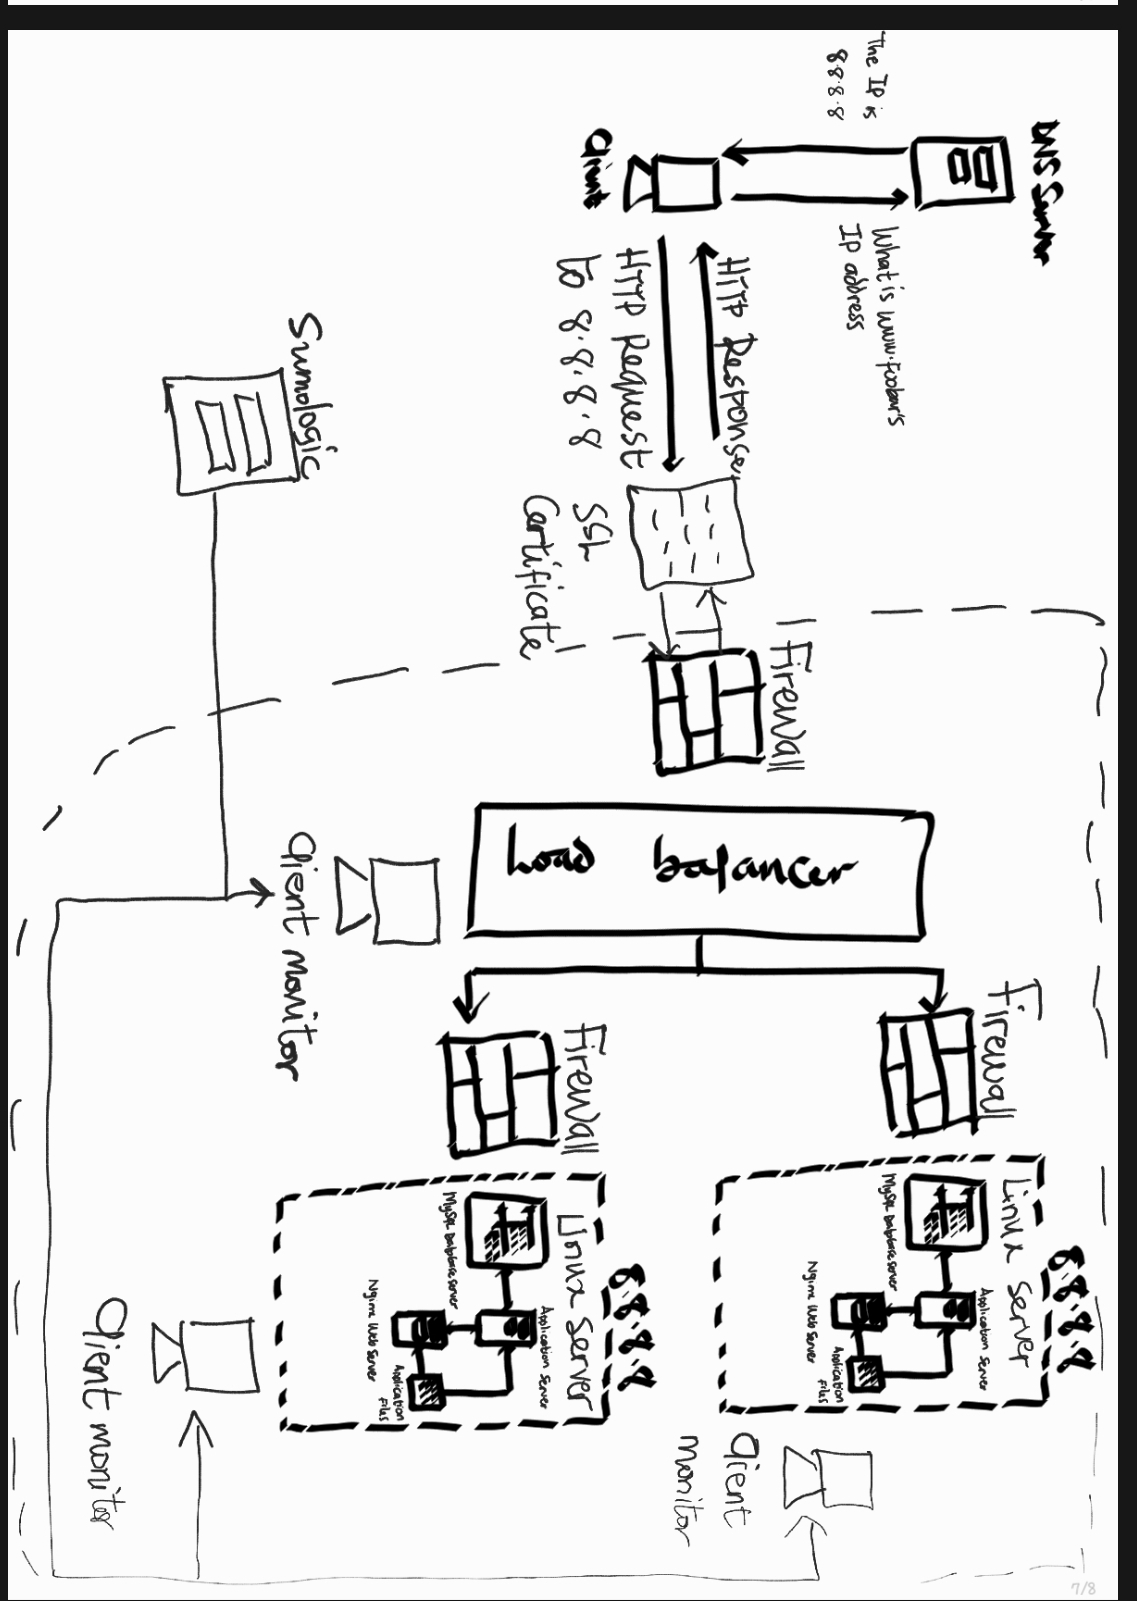 DNS Server
The IP is
8.8.8.8
What is www.foobar's
IP address
HTTP Response
HTTP Request
to 8.8.8.8
Client
SSL
Certificate
Firewall
Load balancer
Firewall
8.8.8.8
Linux Server
Application Server
MySQL Database Server
Application
Files
Nginx Web Server
Client
monitor
Firewall
8.8.8.8
Linux Server
Application Server
MySQL Database Server
Application
Files
Nginx Web Server
Client monitor
Client monitor
Sumologic
7/8